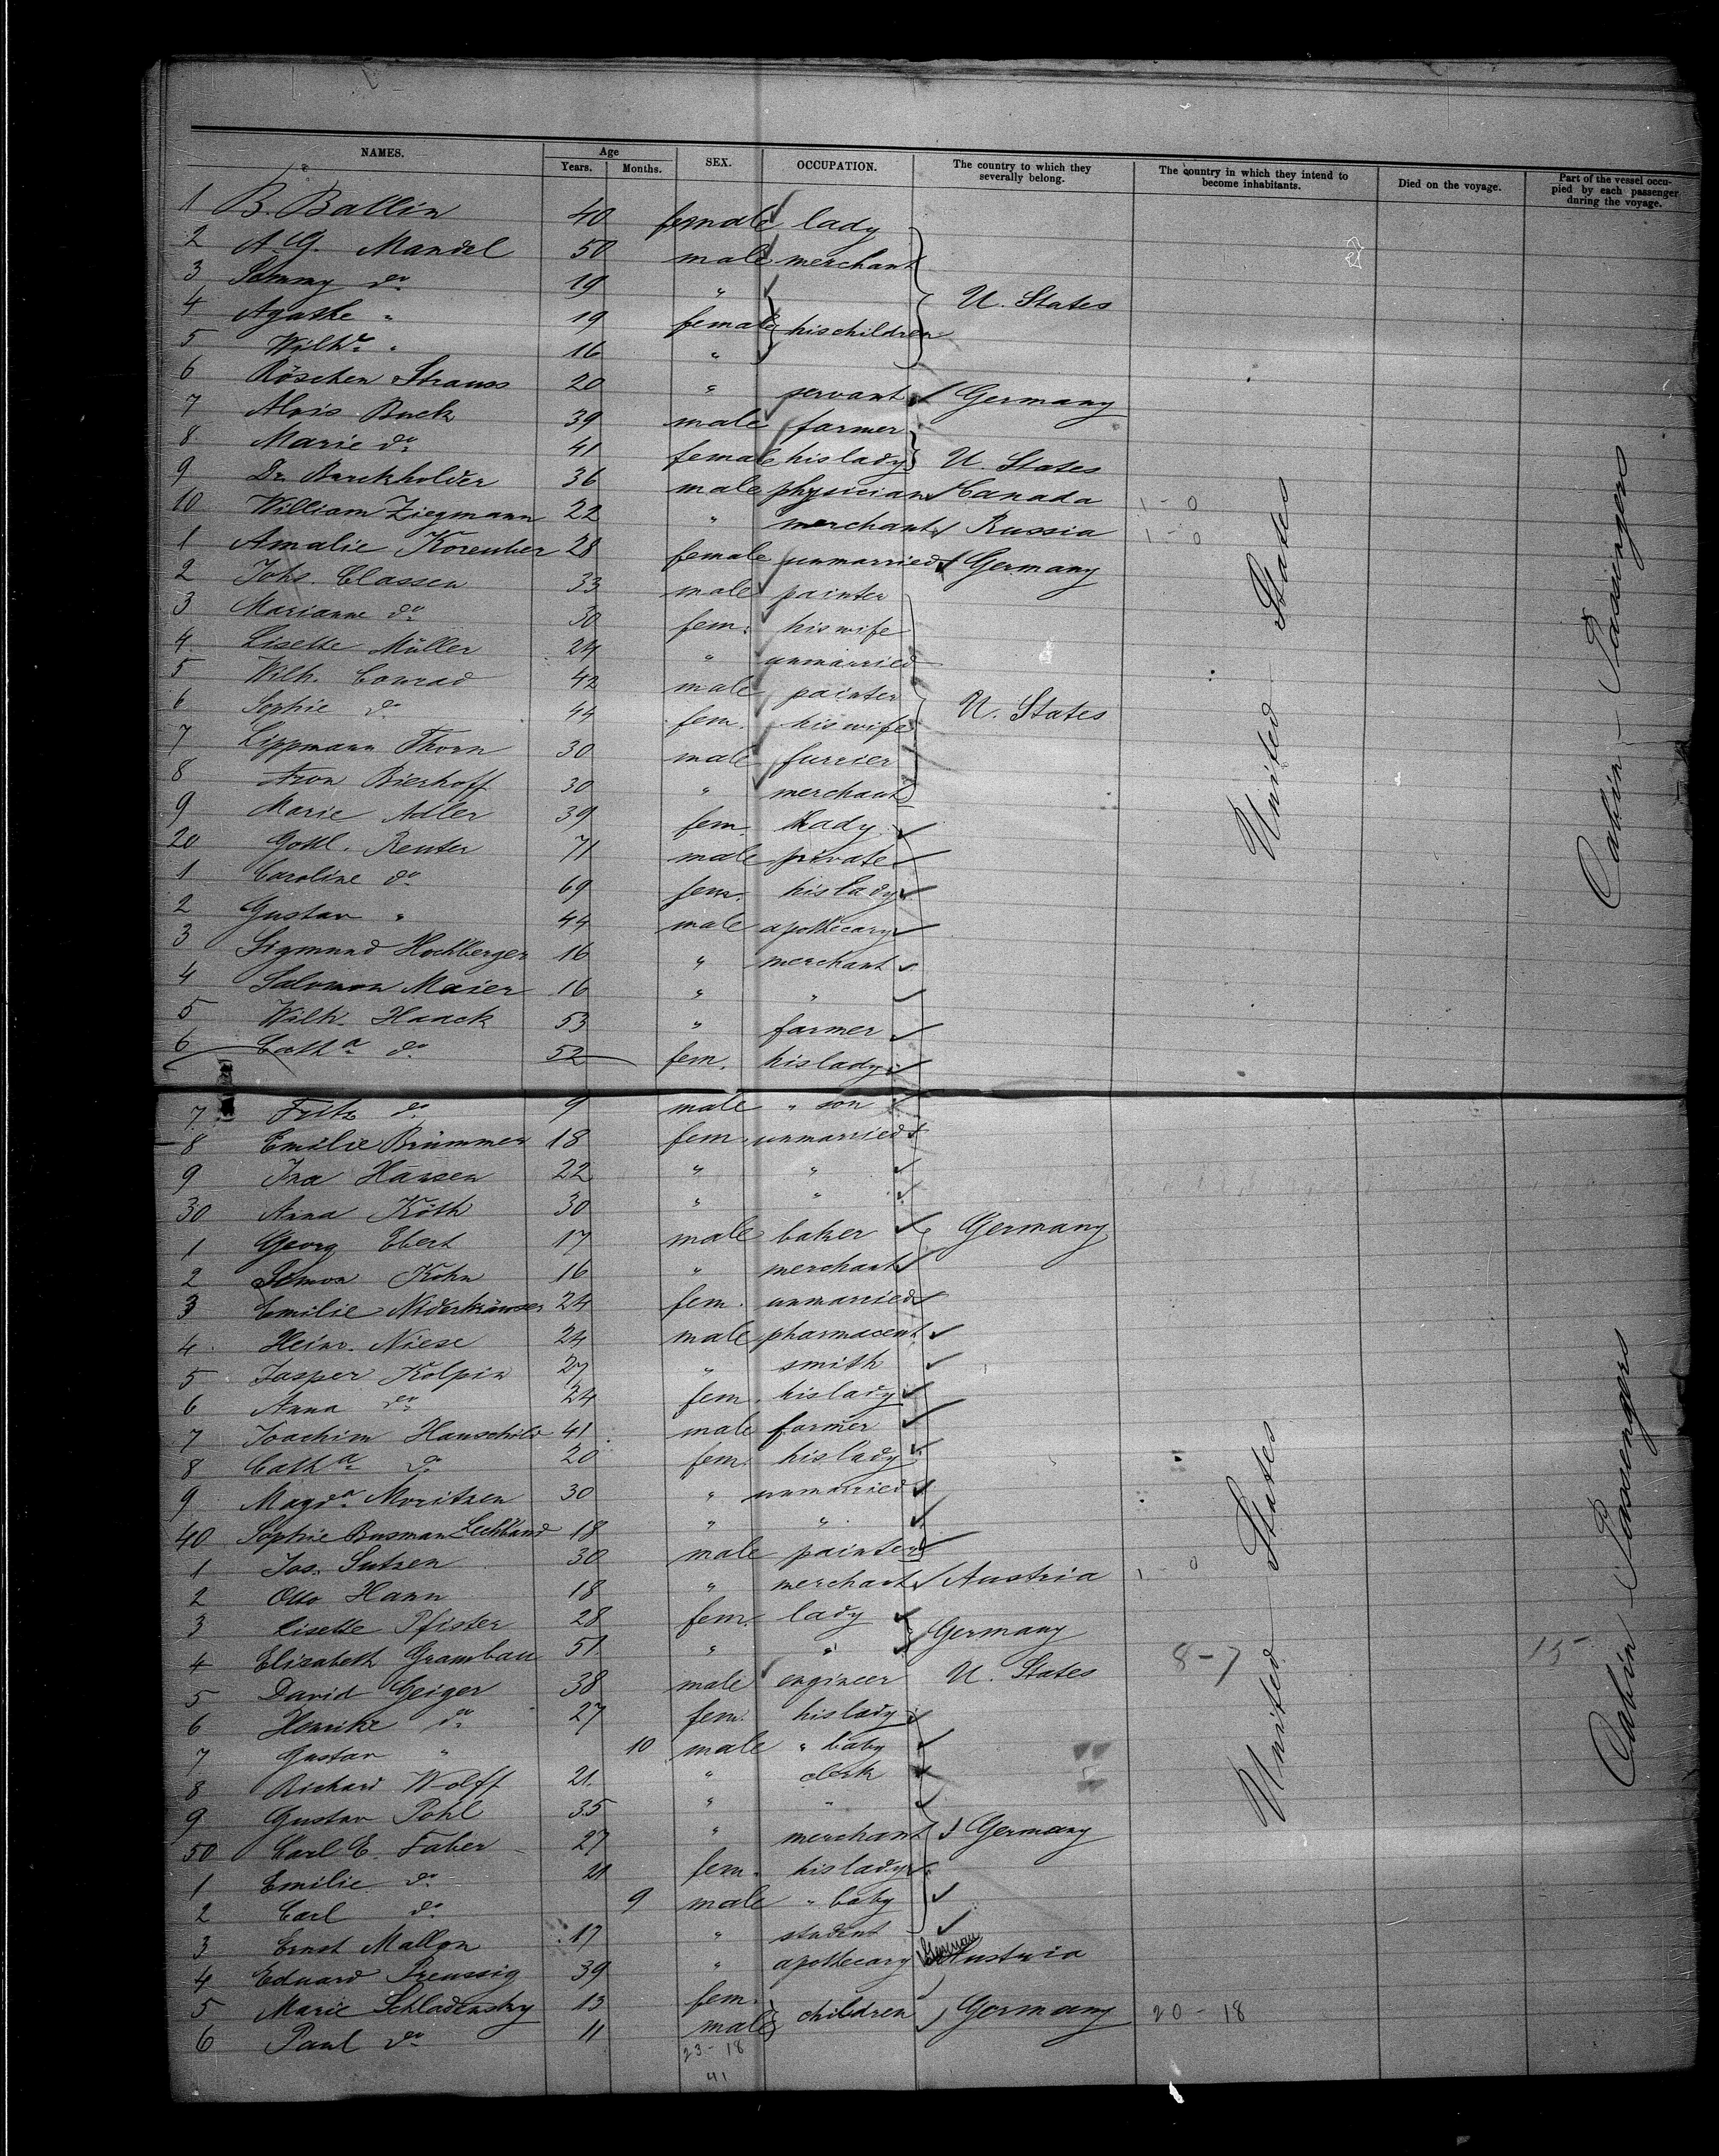 NAMES. Age Years. Months. SEX. OCCUPATION. The country to which they severally belong. The country in which they intend to become inhabitants. Died on the voyage. Part of the vessel occupied by each passenger during the voyage.
1 B. Ballin 40 female lady
2 A. G. Mandel 50 male merchant
3 Sammy do 19 "
4 Agathe " 19 female his children U. States
5 Wilhe " 16 "
6 Röschen Strauss 20 " servant Germany
7 Alois Buck 39 male farmer
8 Marie do 41 female his lady U. States
9 Dr. Burckholder 36 male physician Canada 1 - 0
10 William Ziegmann 22 " merchant Russia 1 - 0
1 Amalie 28 female unmarried Germany
2 Johs. Classen 33 male painter
3 Marianne do 30 fem. his wife
4 Lisette Müller 24 " unmarried
5 Wilh. Conrad 42 male painter
6 Sophie do 44 fem. his wife U. States
7 Lippmann Thorn 30 male furrier
8 Aron Bierhoff 30 " merchant
9 Marie Adler 39 fem. Lady
20 Gottl. Reuter 71 male private
1 Caroline do 69 fem. his lady
2 Gustav " 44 male apothecary
3 Sigmund Hochberger 16 " merchant
4 Salomon Maier 16 " "
5 Wilh. Haack 53 " farmer
6 Catha do 52 fem. his lady
7 Fritz do 9 male " son
8 Emilie Brümmer 18 fem. unmarried
9 Ina Hansen 22 " "
30 Anna Köth 30 " "
1 Georg Ebert 17 male baker Germany
2 Simon Kohn 16 " merchant
3 Emilie 24 fem. unmarried
4 Heinr. Niese 24 male pharmaceut.
5 Jasper Kolpin 27 " smith
6 Anna do 24 fem. his lady
7 Joachim Hauschild 41 male farmer
8 Catha do 20 fem. his lady
9 Magda Moritzen 30 " unmarried
40 Sophie Busman 18 " "
1 Jos. 30 male painter
2 Otto Hann 18 " merchant Austria 1 - 0
3 Lisette Pfister 28 fem. lady
4 Elisabeth Grambau 51 " " Germany
5 David Geiger 38 male engineer U. States 8-7 15
6 Henrike do 27 fem. his lady
7 Gustav " 10 male " baby
8 Richard Wolff 21 " clerk
9 Gustav Pohl 35 " "
50 Carl E. Faber 27 " merchant Germany
1 Emilie do 21 fem. his lady
2 Carl do 9 male " baby
3 Ernst Mallon 17 " student
4 Eduard Preussig 39 " apothecary Austria
5 Marie Schladensky 13 fem.
6 Paul do 11 male children Germany 20 - 18
23 - 18
41
United States
Cabin - Passengers
United States
Cabin Passengers